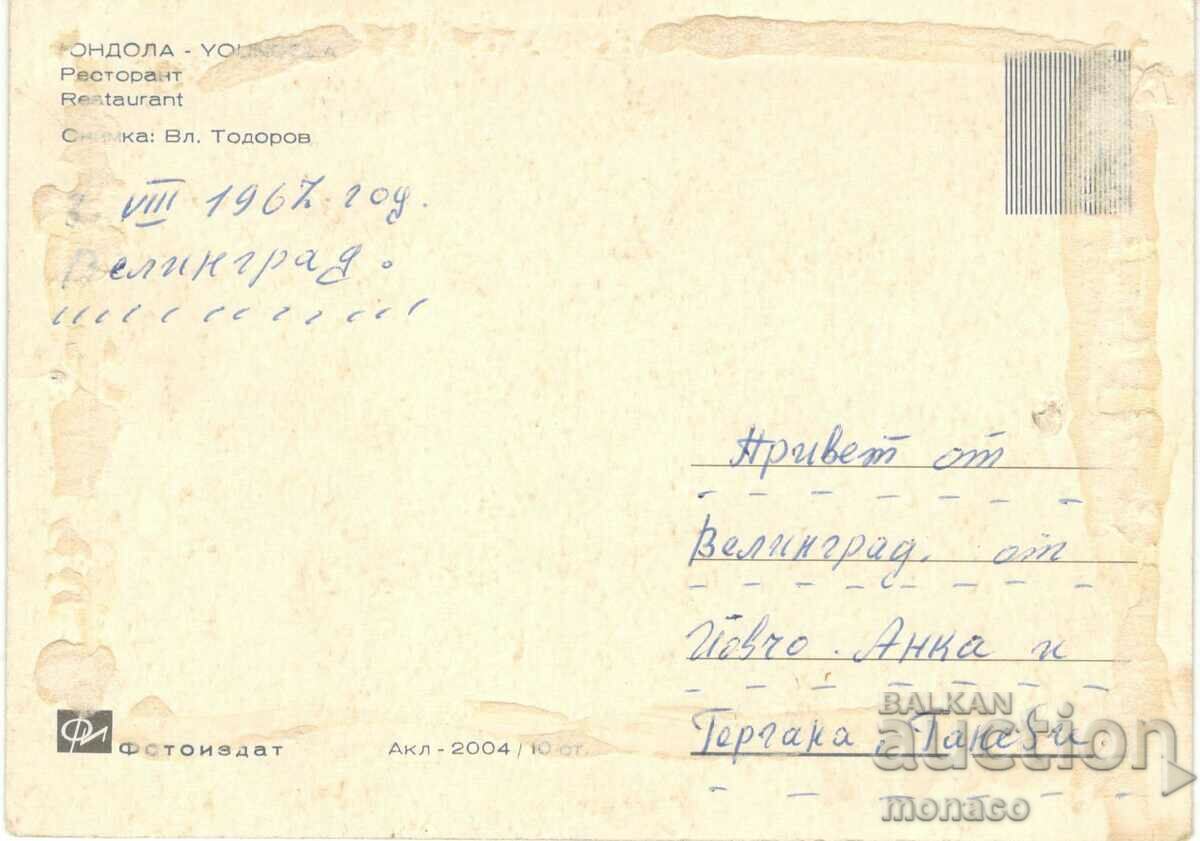 ЮНДОЛА - YOUNDOLA
Ресторант
Restaurant
Снимка: Вл. Тодоров
VIII 1967 год.
Велинград.
Привет от
Велинград. от
Йовчо. Анка и
Гергана, Ганеви.
ФИ Фотоиздат
Акл - 2004 / 10 ст.
BALKAN
auction
monaco